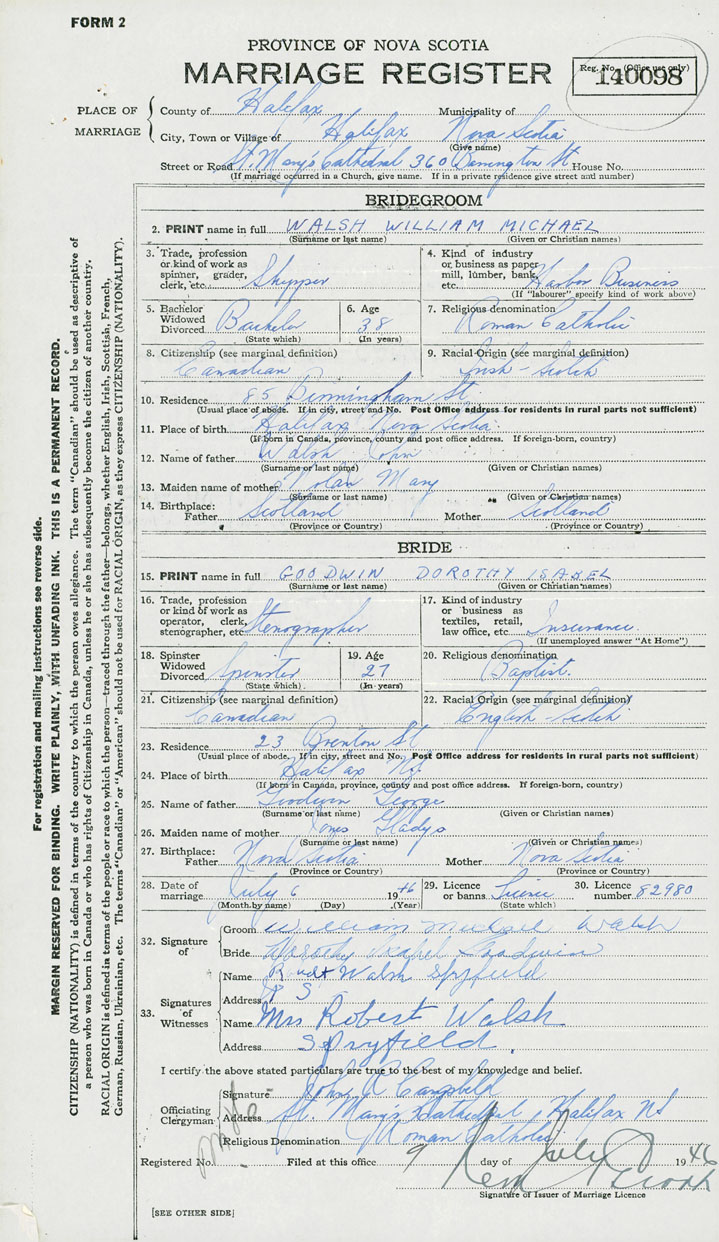 FORM 2
PROVINCE OF NOVA SCOTIA
MARRIAGE REGISTER
Reg. No. (Office use only)
140098
PLACE OF MARRIAGE
County of Halifax Municipality of
City, Town or Village of Halifax Nova Scotia
(Give name)
Street or Road St. Mary's Cathedral 360 Barrington St House No.
(If marriage occurred in a Church, give name. If in a private residence give street and number)
BRIDEGROOM
2. PRINT name in full WALSH WILLIAM MICHAEL
(Surname or last name) (Given or Christian names)
3. Trade, profession or kind of work as spinner, grader, clerk, etc. Skipper
4. Kind of industry or business as paper mill, lumber, bank, etc. Harbor Business
(If "labourer" specify kind of work above)
5. Bachelor Widowed Divorced Bachelor
(State which)
6. Age 38
(In years)
7. Religious denomination Roman Catholic
8. Citizenship (see marginal definition) Canadian
9. Racial Origin (see marginal definition) Irish - Scotch
10. Residence 85 Birmingham St.
(Usual place of abode. If in city, street and No. Post Office address for residents in rural parts not sufficient)
11. Place of birth Halifax Nova Scotia
(If born in Canada, province, county and post office address. If foreign-born, country)
12. Name of father Walsh John
(Surname or last name) (Given or Christian names)
13. Maiden name of mother Nolan Mary
(Surname or last name) (Given or Christian names)
14. Birthplace: Father Scotland Mother Scotland
(Province or Country) (Province or Country)
BRIDE
15. PRINT name in full GOODWIN DOROTHY ISABEL
(Surname or last name) (Given or Christian names)
16. Trade, profession or kind of work as operator, clerk, stenographer, etc. Stenographer
17. Kind of industry or business as textiles, retail, law office, etc. Insurance
(If unemployed answer "At Home")
18. Spinster Widowed Divorced Spinster
(State which)
19. Age 27
(In years)
20. Religious denomination Baptist.
21. Citizenship (see marginal definition) Canadian
22. Racial Origin (see marginal definition) English Scotch
23. Residence 23 Brenton St
(Usual place of abode. If in city, street and No. Post Office address for residents in rural parts not sufficient)
24. Place of birth Halifax N.S.
(If born in Canada, province, county and post office address. If foreign-born, country)
25. Name of father Goodwin George
(Surname or last name) (Given or Christian names)
26. Maiden name of mother Jones Gladys
(Surname or last name) (Given or Christian names)
27. Birthplace: Father Nova Scotia Mother Nova Scotia
(Province or Country) (Province or Country)
28. Date of marriage July 6 1946
(Month by name) (Day) (Year)
29. Licence or banns License
(State which)
30. Licence number 82980
32. Signature of
Groom William Michael Walsh
Bride Dorothy Isabel Goodwin
33. Signatures of Witnesses
Name Walsh Spryfield
Address
Name Mrs Robert Walsh
Address Spryfield.
I certify the above stated particulars are true to the best of my knowledge and belief.
Officiating Clergyman
Signature John A Campbell
Address St. Mary's Cathedral, Halifax NS
Religious Denomination Roman Catholic
Registered No. Filed at this office 9 day of July 1946
Signature of Issuer of Marriage Licence
[SEE OTHER SIDE]
For registration and mailing instructions see reverse side.
MARGIN RESERVED FOR BINDING. WRITE PLAINLY, WITH UNFADING INK. THIS IS A PERMANENT RECORD.
CITIZENSHIP (NATIONALITY) is defined in terms of the country to which the person owes allegiance. The term "Canadian" should be used as descriptive of
a person who was born in Canada or who has rights of Citizenship in Canada, unless he or she has subsequently become the citizen of another country.
RACIAL ORIGIN is defined in terms of the people or race to which the person—traced through the father—belongs, whether English, Irish, Scottish, French,
German, Russian, Ukrainian, etc. The terms "Canadian" or "American" should not be used for RACIAL ORIGIN, as they express CITIZENSHIP (NATIONALITY).